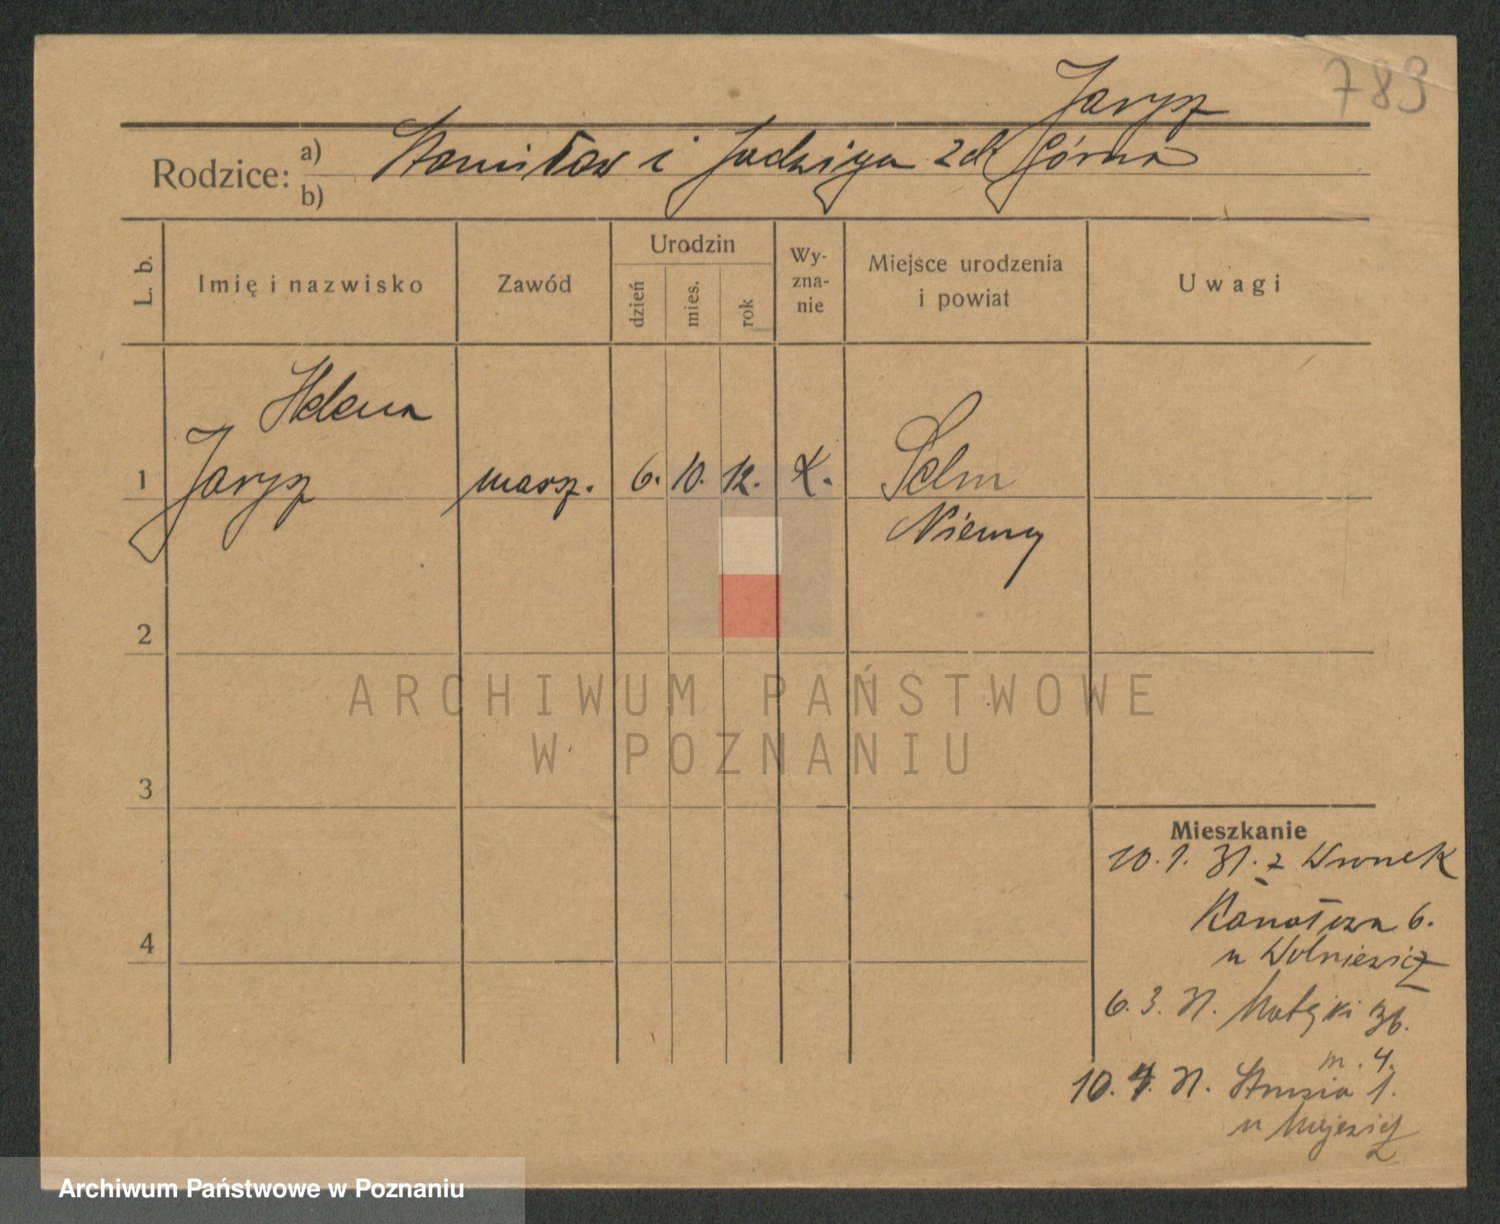 783
Jarysz
Rodzice: a) Stanisław i Jadwiga zd Górna
b)
L. b. Imię i nazwisko Zawód Urodzin dzień mies. rok Wy-zna-nie Miejsce urodzenia i powiat Uwagi
Helena
1 Jarysz marsz. 6. 10. 12. K. Selm
Niemcy
2
ARCHIWUM PAŃSTWOWE
W POZNANIU
3
Mieszkanie
10. 1. 31. z Wronek
6.
u Wolniewicz
4
6. 3. 31. Matejki 36.
m. 4.
10. 4. 31. Strusia 1.
u
Archiwum Państwowe w Poznaniu